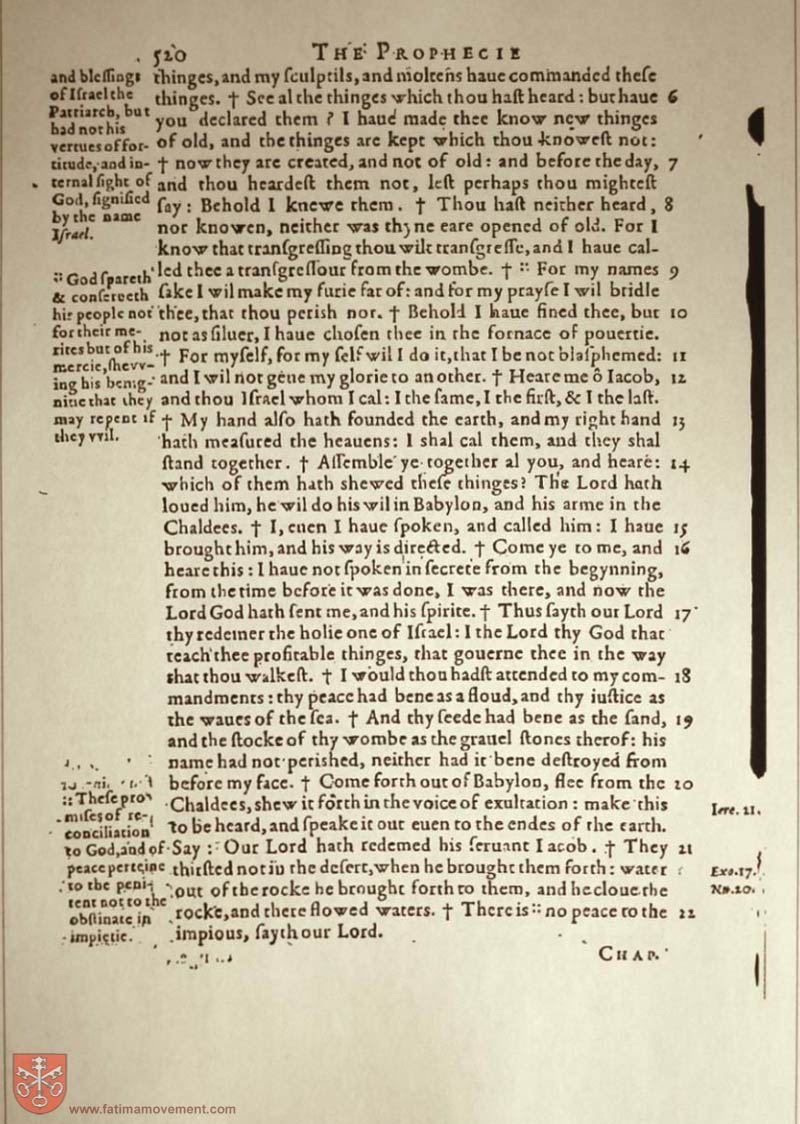 520 THE PROPHECIE
and blessings
of Iſrael the
Patriarch, but
had not his
vertues of for-
titude, and in-
ternal ſight of
God, ſignified
by the name
Iſrael.
:: God ſpareth
& conſerueth
his people not
for their me-
rites but of his
mercie, ſhevv-
ing his benig-
nitie that they
may repent if
they vvil.
thinges, and my ſculptils, and moltens haue commanded theſe
thinges. † See al the thinges which thou haſt heard: but haue 6
you declared them? I haue made thee know new thinges
of old, and the thinges are kept which thou knoweſt not:
† now they are created, and not of old: and before the day, 7
and thou heardeſt them not, leſt perhaps thou mighteſt
ſay: Behold I knewe them. † Thou haſt neither heard, 8
nor knowen, neither was thyne eare opened of old. For I
know that tranſgreſſing thou wilt tranſgreſſe, and I haue cal-
led thee a tranſgreſſour from the wombe. † :: For my names 9
ſake I wil make my furie far of: and for my prayſe I wil bridle
thee, that thou periſh not. † Behold I haue fined thee, but 10
not as ſiluer, I haue choſen thee in the fornace of pouertie.
† For myſelf, for my ſelf wil I do it, that I be not blaſphemed: 11
and I wil not geue my glorie to an other. † Heare me ô Iacob, 12
and thou Iſrael whom I cal: I the ſame, I the firſt, & I the laſt.
† My hand alſo hath founded the earth, and my right hand 13
hath meaſured the heauens: I shal cal them, and they shal
ſtand together. † Aſſemble ye together al you, and heare: 14
which of them hath shewed theſe thinges? The Lord hath
loued him, he wil do his wil in Babylon, and his arme in the
Chaldees. † I, euen I haue ſpoken, and called him: I haue 15
brought him, and his way is directed. † Come ye to me, and 16
heare this: I haue not ſpoken in ſecrete from the begynning,
from the time before it was done, I was there, and now the
Lord God hath ſent me, and his ſpirite. † Thus ſayth our Lord 17
thy redemer the holie one of Iſrael: I the Lord thy God that
teach thee profitable thinges, that gouerne thee in the way
that thou walkeſt. † I would thou hadſt attended to my com- 18
mandments: thy peace had bene as a floud, and thy iuſtice as
the waues of the ſea. † And thy ſeede had bene as the ſand, 19
and the ſtocke of thy wombe as the grauel ſtones therof: his
name had not perished, neither had it bene deſtroyed from
before my face. † Come forth out of Babylon, flee from the 20
Chaldees, shew it forth in the voice of exultation: make this
to be heard, and ſpeake it out euen to the endes of the earth.
Say: Our Lord hath redemed his ſeruant Iacob. † They 21
thirſted not in the deſert, when he brought them forth: water
out of the rocke he brought forth to them, and he cloue the
rocke, and there flowed waters. † There is :: no peace to the 22
impious, ſayth our Lord.
:: Theſe pro
miſes of re-
conciliation
to God, and of
peace perteine
to the peni-
tent not to the
obſtinate in
impietie.
Iere. 21.
Exo. 17.
Nu. 20.
CHAP.
www.fatimamovement.com